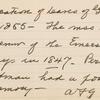 eation of Leaves of G
1855- The mos
emor of the Emers
ays in 1847. Per
man had a poor
emory - a+g